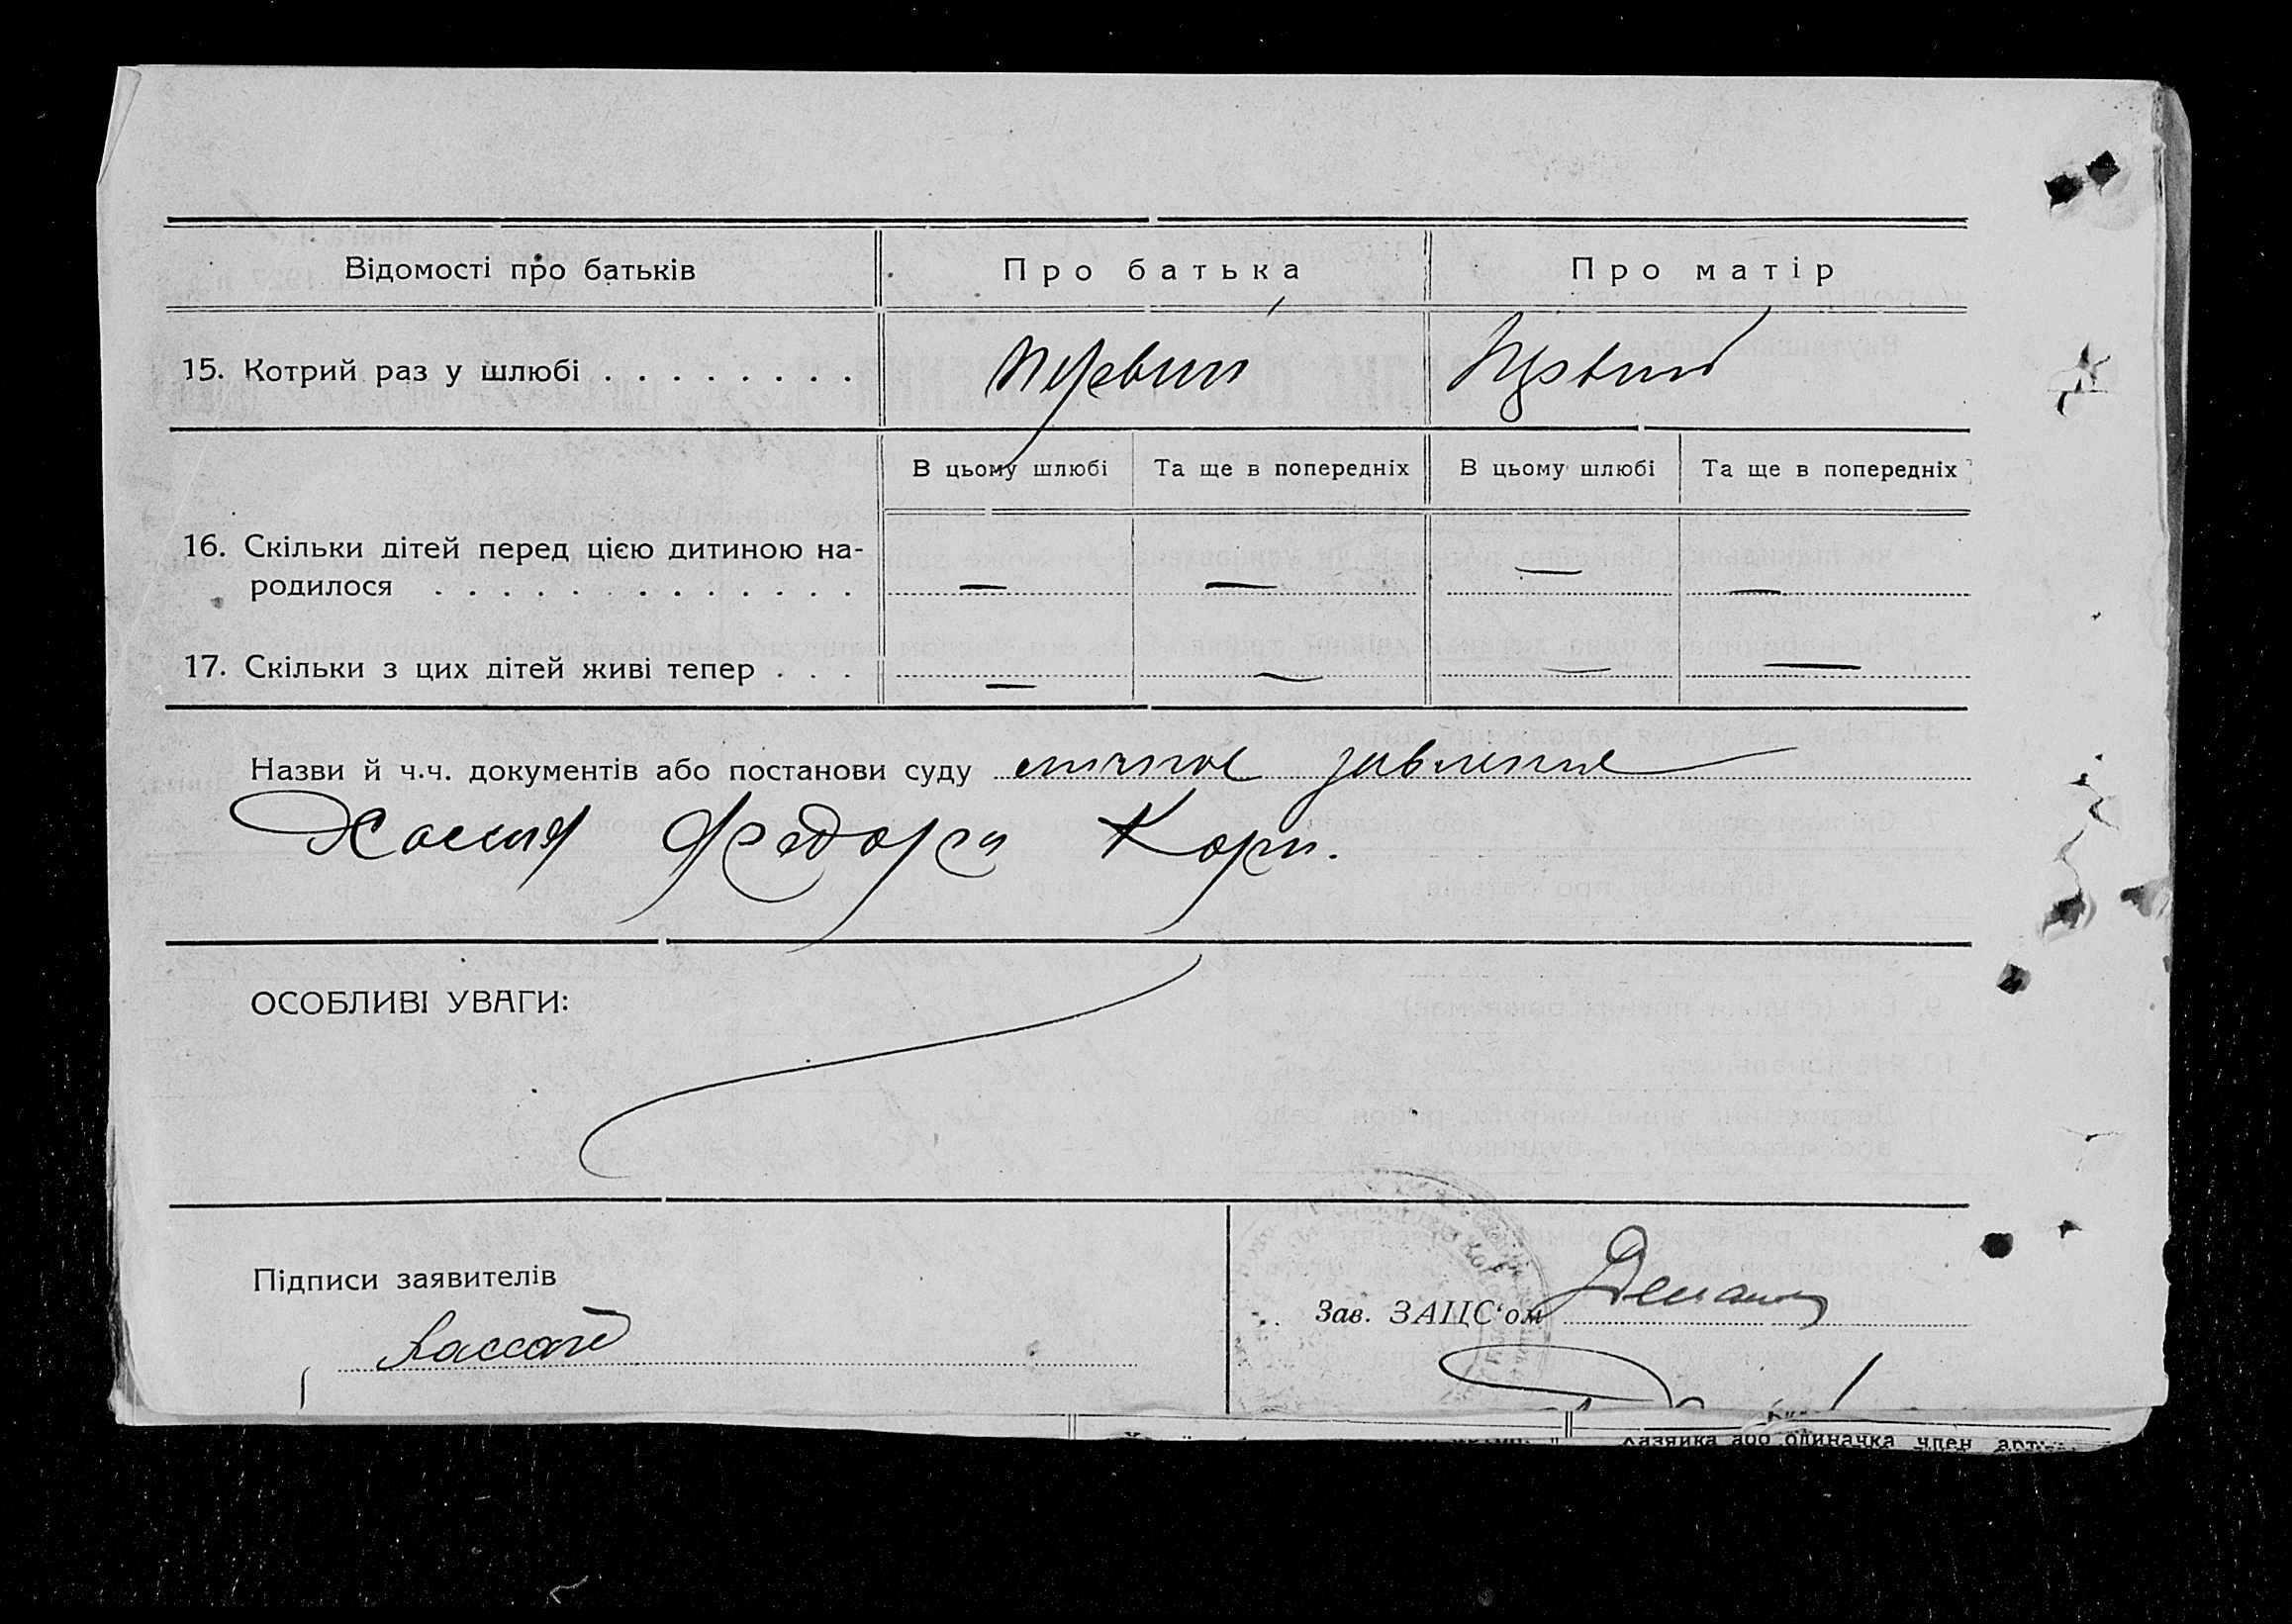 Відомості про батьків
Про батька
Про матір
15. Котрий раз у шлюбі . . . . . . . .
первий
первий
В цьому шлюбі
Та ще в попередніх
В цьому шлюбі
Та ще в попередніх
16. Скільки дітей перед цією дитиною на-
родилося . . . . . . . . . . . . .
— — — —
17. Скільки з цих дітей живі тепер . . .
— — — —
Назви й ч.ч. документів або постанови суду
Федора Корн.
ОСОБЛИВІ УВАГИ:
Підписи заявителів
Зав. ЗАЦС'ом
Хазяйка або одиначка член